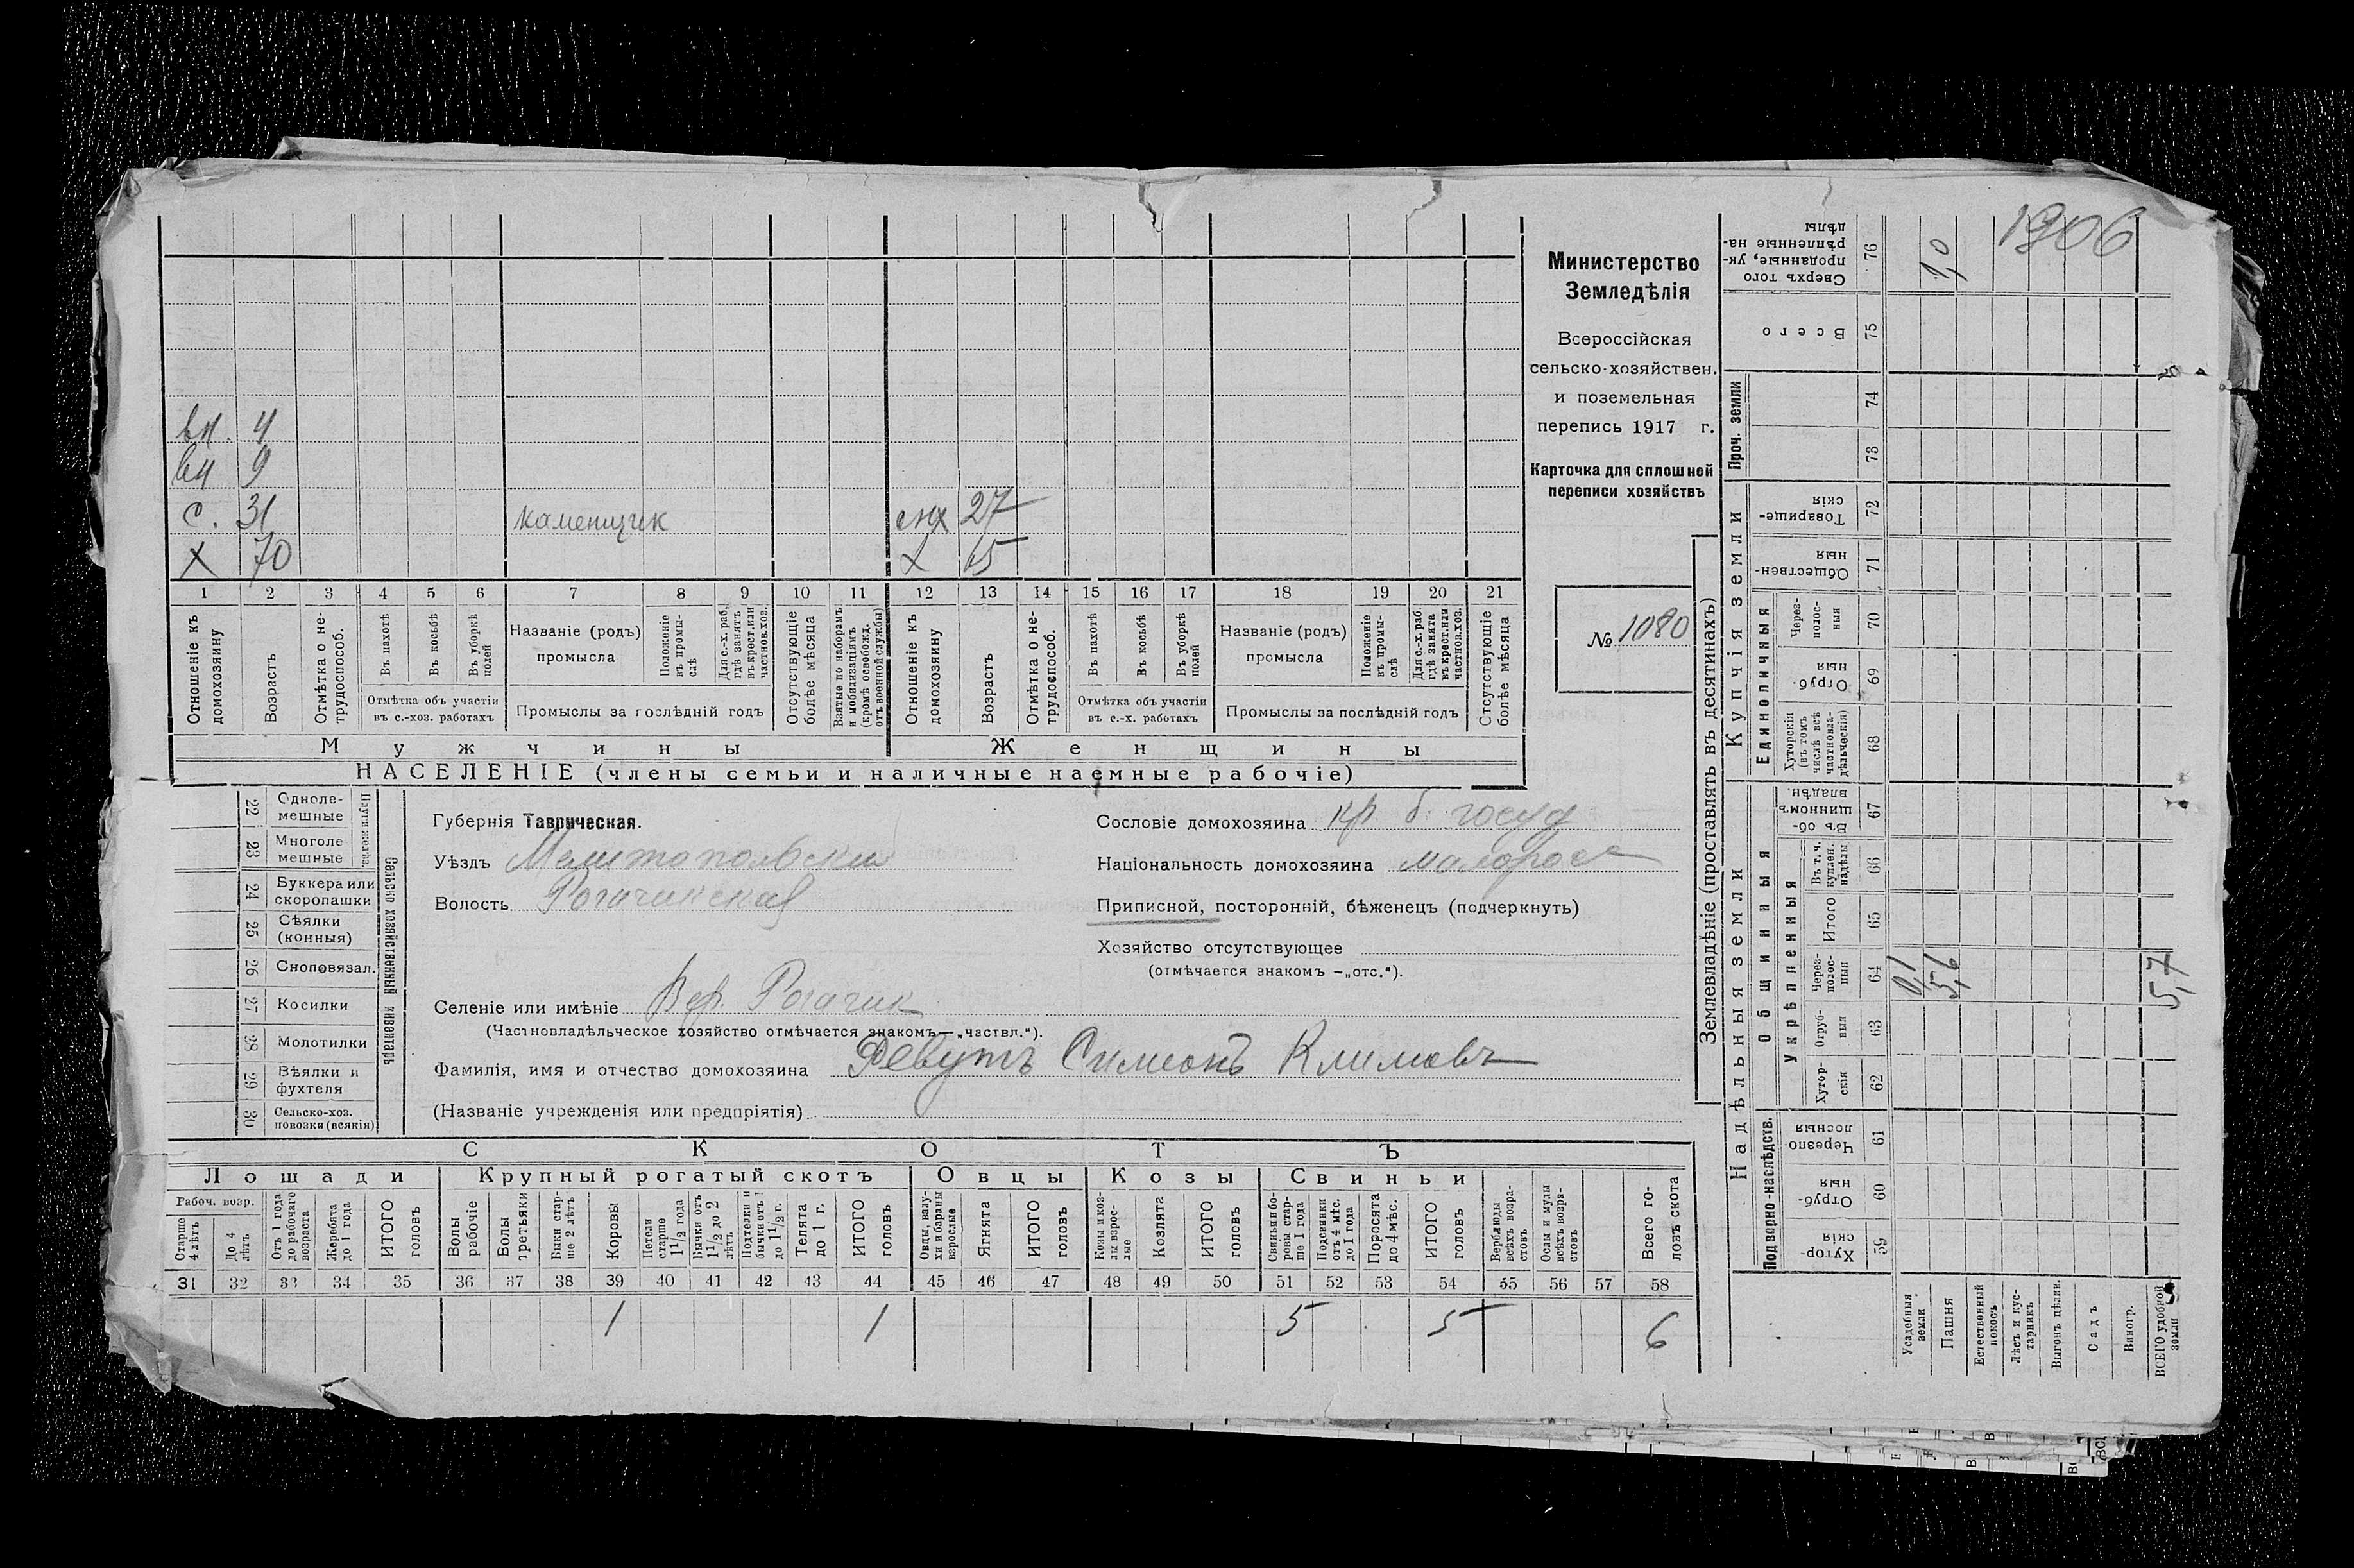 вн. 4
вн 9
с. 31 каменщик снх 27
х 70 х 65
1 2 3 4 5 6 7 8 9 10 11 12 13 14 15 16 17 18 19 20 21
Отношеніе къ домохозяину
Возрастъ
Отмѣтка о не-трудоспособ.
Въ пахотѣ
Въ косьбѣ
Въ уборкѣ полей
Отмѣтка объ участіи въ с.-хоз. работахъ
Названіе (родъ) промысла
Положеніе въ промы-слѣ
Для с.-х. раб. гдѣ занятъ въ крест. или частнов. хоз.
Промыслы за послѣдній годъ
Отсутствующіе болѣе мѣсяца
Взятые по наборамъ и мобилизаціямъ (кромѣ освобожд. отъ военной службы)
Отношеніе къ домохозяину
Возрастъ
Отмѣтка о не-трудоспособ.
Въ пахотѣ
Въ косьбѣ
Въ уборкѣ полей
Отмѣтка объ участіи въ с.-х. работахъ
Названіе (родъ) промысла
Положеніе въ промы-слѣ
Для с.-х. раб. гдѣ занята въ крест. или частнов. хоз.
Промыслы за послѣдній годъ
Отсутствующіе болѣе мѣсяца
Мужчины Женщины
НАСЕЛЕНІЕ (члены семьи и наличные наемные рабочіе)
Министерство
Земледѣлія
Всероссійская
сельско-хозяйствен.
и поземельная
перепись 1917 г.
Карточка для сплошной
переписи хозяйствъ
№ 1080
22 Одноле-мешные
23 Многоле мешные
24 Буккера или скоропашки
25 Сѣялки (конныя)
26 Сноповязал.
27 Косилки
28 Молотилки
29 Вѣялки и фухтеля
30 Сельско-хоз. повозки (всякія)
Плуги желѣз.
Сельско хозяйственный инвентарь
Губернія Таврическая.
Уѣздъ Мелитопольскій
Волость Рогачикская
Селеніе или имѣніе Вер. Рогачик
(Частновладѣльческое хозяйство отмѣчается знакомъ—„частвл.“).
Фамилія, имя и отчество домохозяина Девутъ Симеонъ Климовъ
(Названіе учрежденія или предпріятія)
Сословіе домохозяина кр. б. госуд
Національность домохозяина малоросс
Приписной, посторонній, бѣженецъ (подчеркнуть)
Хозяйство отсутствующее
(отмѣчается знакомъ —„отс.“).
СКОТЪ
Лошади Крупный рогатый скотъ Овцы Козы Свиньи
Рабоч. возр.
Старше 4 лѣтъ
До 4 лѣтъ
Отъ 1 года до рабочаго возраста
Жеребята до 1 года
ИТОГО головъ
Волы рабочіе
Волы третьяки
Быки стар-ше 2 лѣтъ
Коровы
Нетели старше 1 1/2 года
Бычки отъ 1 1/2 до 2 лѣтъ
Подтелки и бычки отъ 1 до 1 1/2 г.
Телята до 1 г.
ИТОГО головъ
Овцы, валу-хи и бараны взрослые
Ягнята
ИТОГО головъ
Козы и коз-лы взрос-лые
Козлята
ИТОГО головъ
Свиньи и бо-ровы стар-ше 1 года
Подсвинки отъ 4 мѣс. до 1 года
Поросята до 4 мѣс.
ИТОГО головъ
Верблюды всѣхъ возра-стовъ
Ослы и мулы всѣхъ возра-стовъ
Всего го-ловъ скота
31 32 33 34 35 36 37 38 39 40 41 42 43 44 45 46 47 48 49 50 51 52 53 54 55 56 57 58
1 1 5 5 6
Землевладѣніе (проставлять въ десятинахъ)
Надѣльныя земли Купчія земли Проч. земли
Подворно-наслѣдств. Общинныя Единоличныя
Укрѣпленныя
Хутор-скія 59
Отруб-ныя 60
Черезпо-лосныя 61
Хутор-скія 62
Отруб-ныя 63
Через-полос-ныя 64
Итого 65
Въ т. ч. куплен. надѣлы 66
Въ об-щинномъ владѣн. 67
Хуторскія (въ томъ числѣ всѣ частновла-дѣльческія) 68
Отруб-ныя 69
Через-полос-ныя 70
Обществен-ныя 71
Товарище-скія 72
73
74
Всего 75
Сверхъ того проданные, ук-рѣпленные на-дѣлы 76
Усадебныя земли 0,1
Пашня 5,6 1,0
Естественный покосъ
Лѣсъ и кус-тарникъ
Выгонъ цѣлин.
Садъ
Виногр.
ВСЕГО удобной земли 5,7
1906